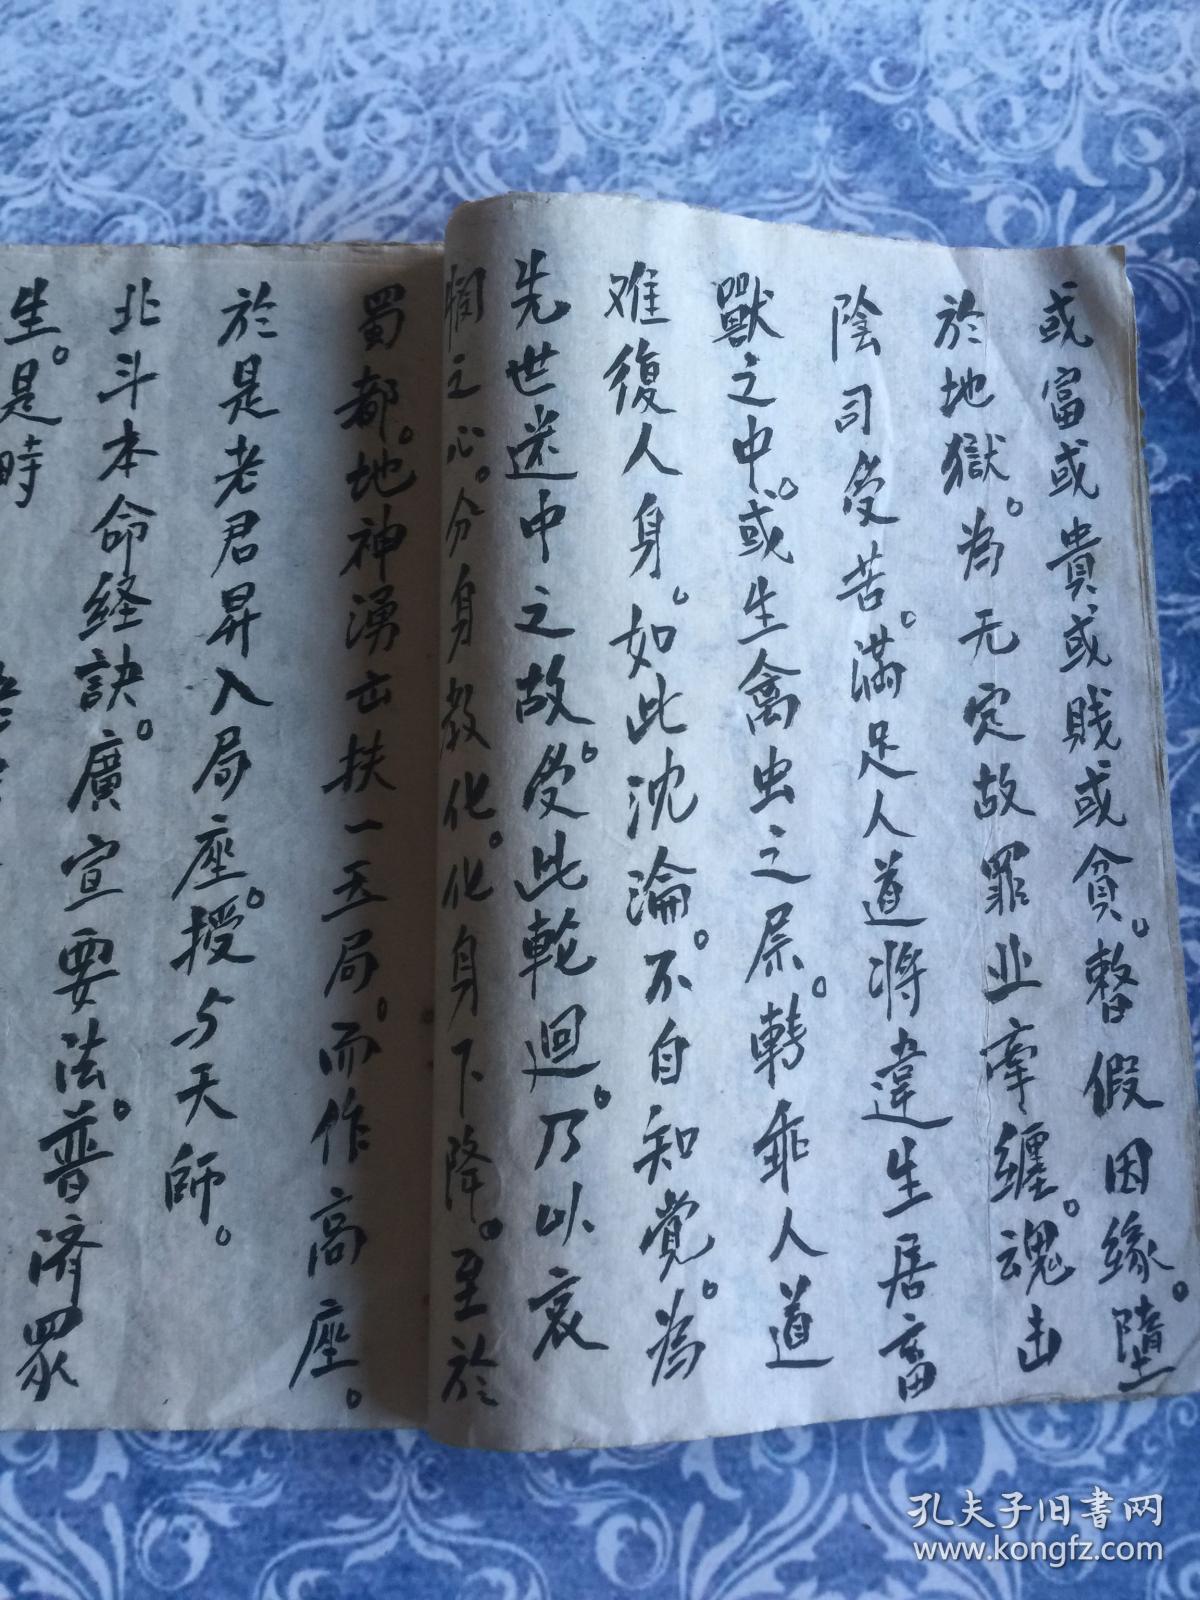 或富或貴或賤或貧。暂假因緣。墮
於地獄。為无定故罪业牽纏。魂击
陰司受苦。滿足人道将違生居畜
獸之中。或生禽虫之屎。轉乖人道
难復人身。如此沈淪。不自知覚。為
先世迷中之故。受此輪迴。乃以哀
憫之心。分身教化。化身下降。至於
蜀都。地神湧击扶一玉局。而作高座。
於是老君昇入局座。授与天師。
北斗本命経訣。廣宣要法。普濟眾
生。是時
孔夫子旧書网
www.kongfz.com